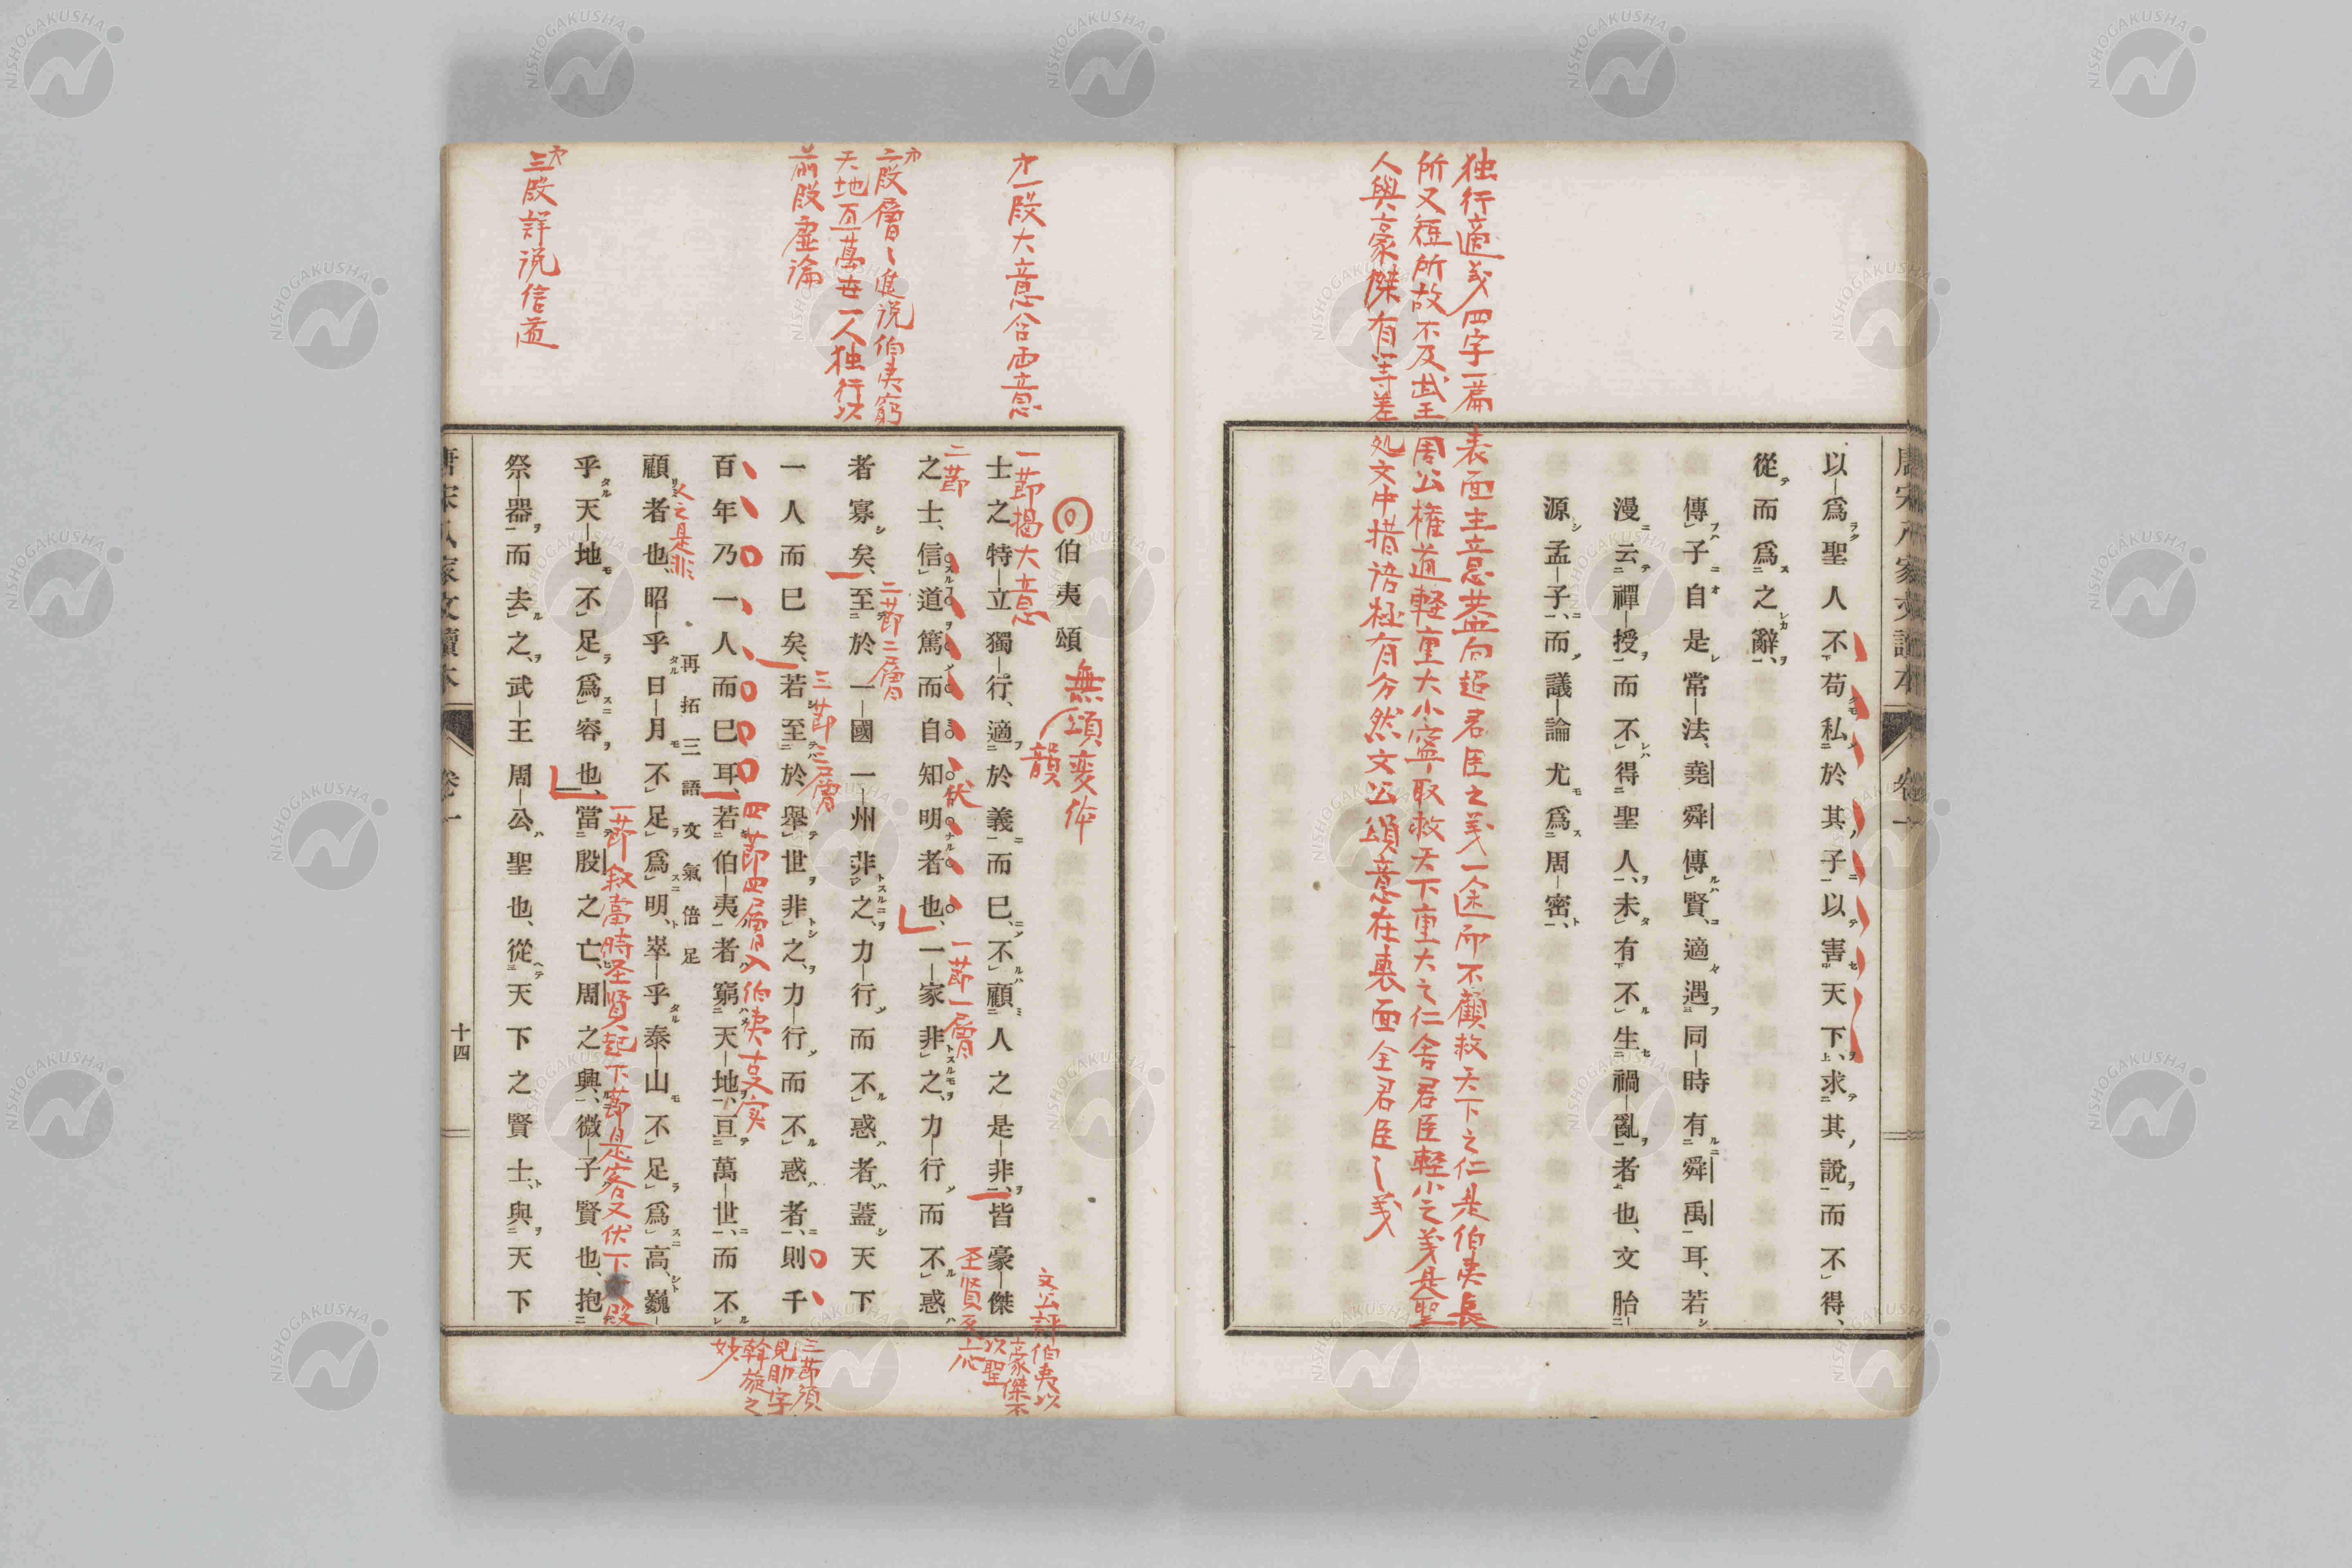 以爲聖人不苟私於其子以害天下、求其說而不得、
從而爲之辭、
傳子自是常法、堯舜傳賢、適遇同時有舜禹耳、若
漫云禪授而不得聖人、未有不生禍亂者也、文胎
源孟子、而議論尤爲周密、
独行適义四字一篇表面主意蓋向超君臣之义一途而不顧救天下之仁是伯夷長
所又短所故不及武王周公権道軽重大小寧取救天下重大之仁舍君臣軽小之义是聖
人與豪傑有等差処文中措语極有分然文公頌意在裏面全君臣之义
伯夷頌
無韻頌変体
士之特立獨行、適於義而已、不顧人之是非、皆豪傑
之士、信道篤而自知明者也、一家非之、力行而不惑
者寡矣、至於一國一州非之、力行而不惑者、蓋天下
一人而已矣、若至於舉世非之、力行而不惑者、則千
百年乃一人而已耳、若伯夷者、窮天地、亘萬世、而不
顧者也、昭乎日月不足爲明、崒乎泰山不足爲高、巍
再拓三語文氣倍足
乎天地不足爲容也、當殷之亡、周之興、微子賢也、抱
祭器而去之、武王周公聖也、從天下之賢士、與天下
才一段大意含両意
才二段層〻進说伯夷窮
天地亘萬世一人独行以
前段虚論
才三段詳说信道
一節揭大意
二節
伏
一節一層
二節二層
三節三層
四節四層入伯夷吉文実
人之是非
一節叙当時圣賢起下節是客又伏下
文公評伯夷以
豪傑不
以聖
圣賢
三節須
見助字
斡旋之
妙
唐宋八家文讀本
卷一
十四
唐宋八家文讀本
卷一
NISHOGAKUSHA